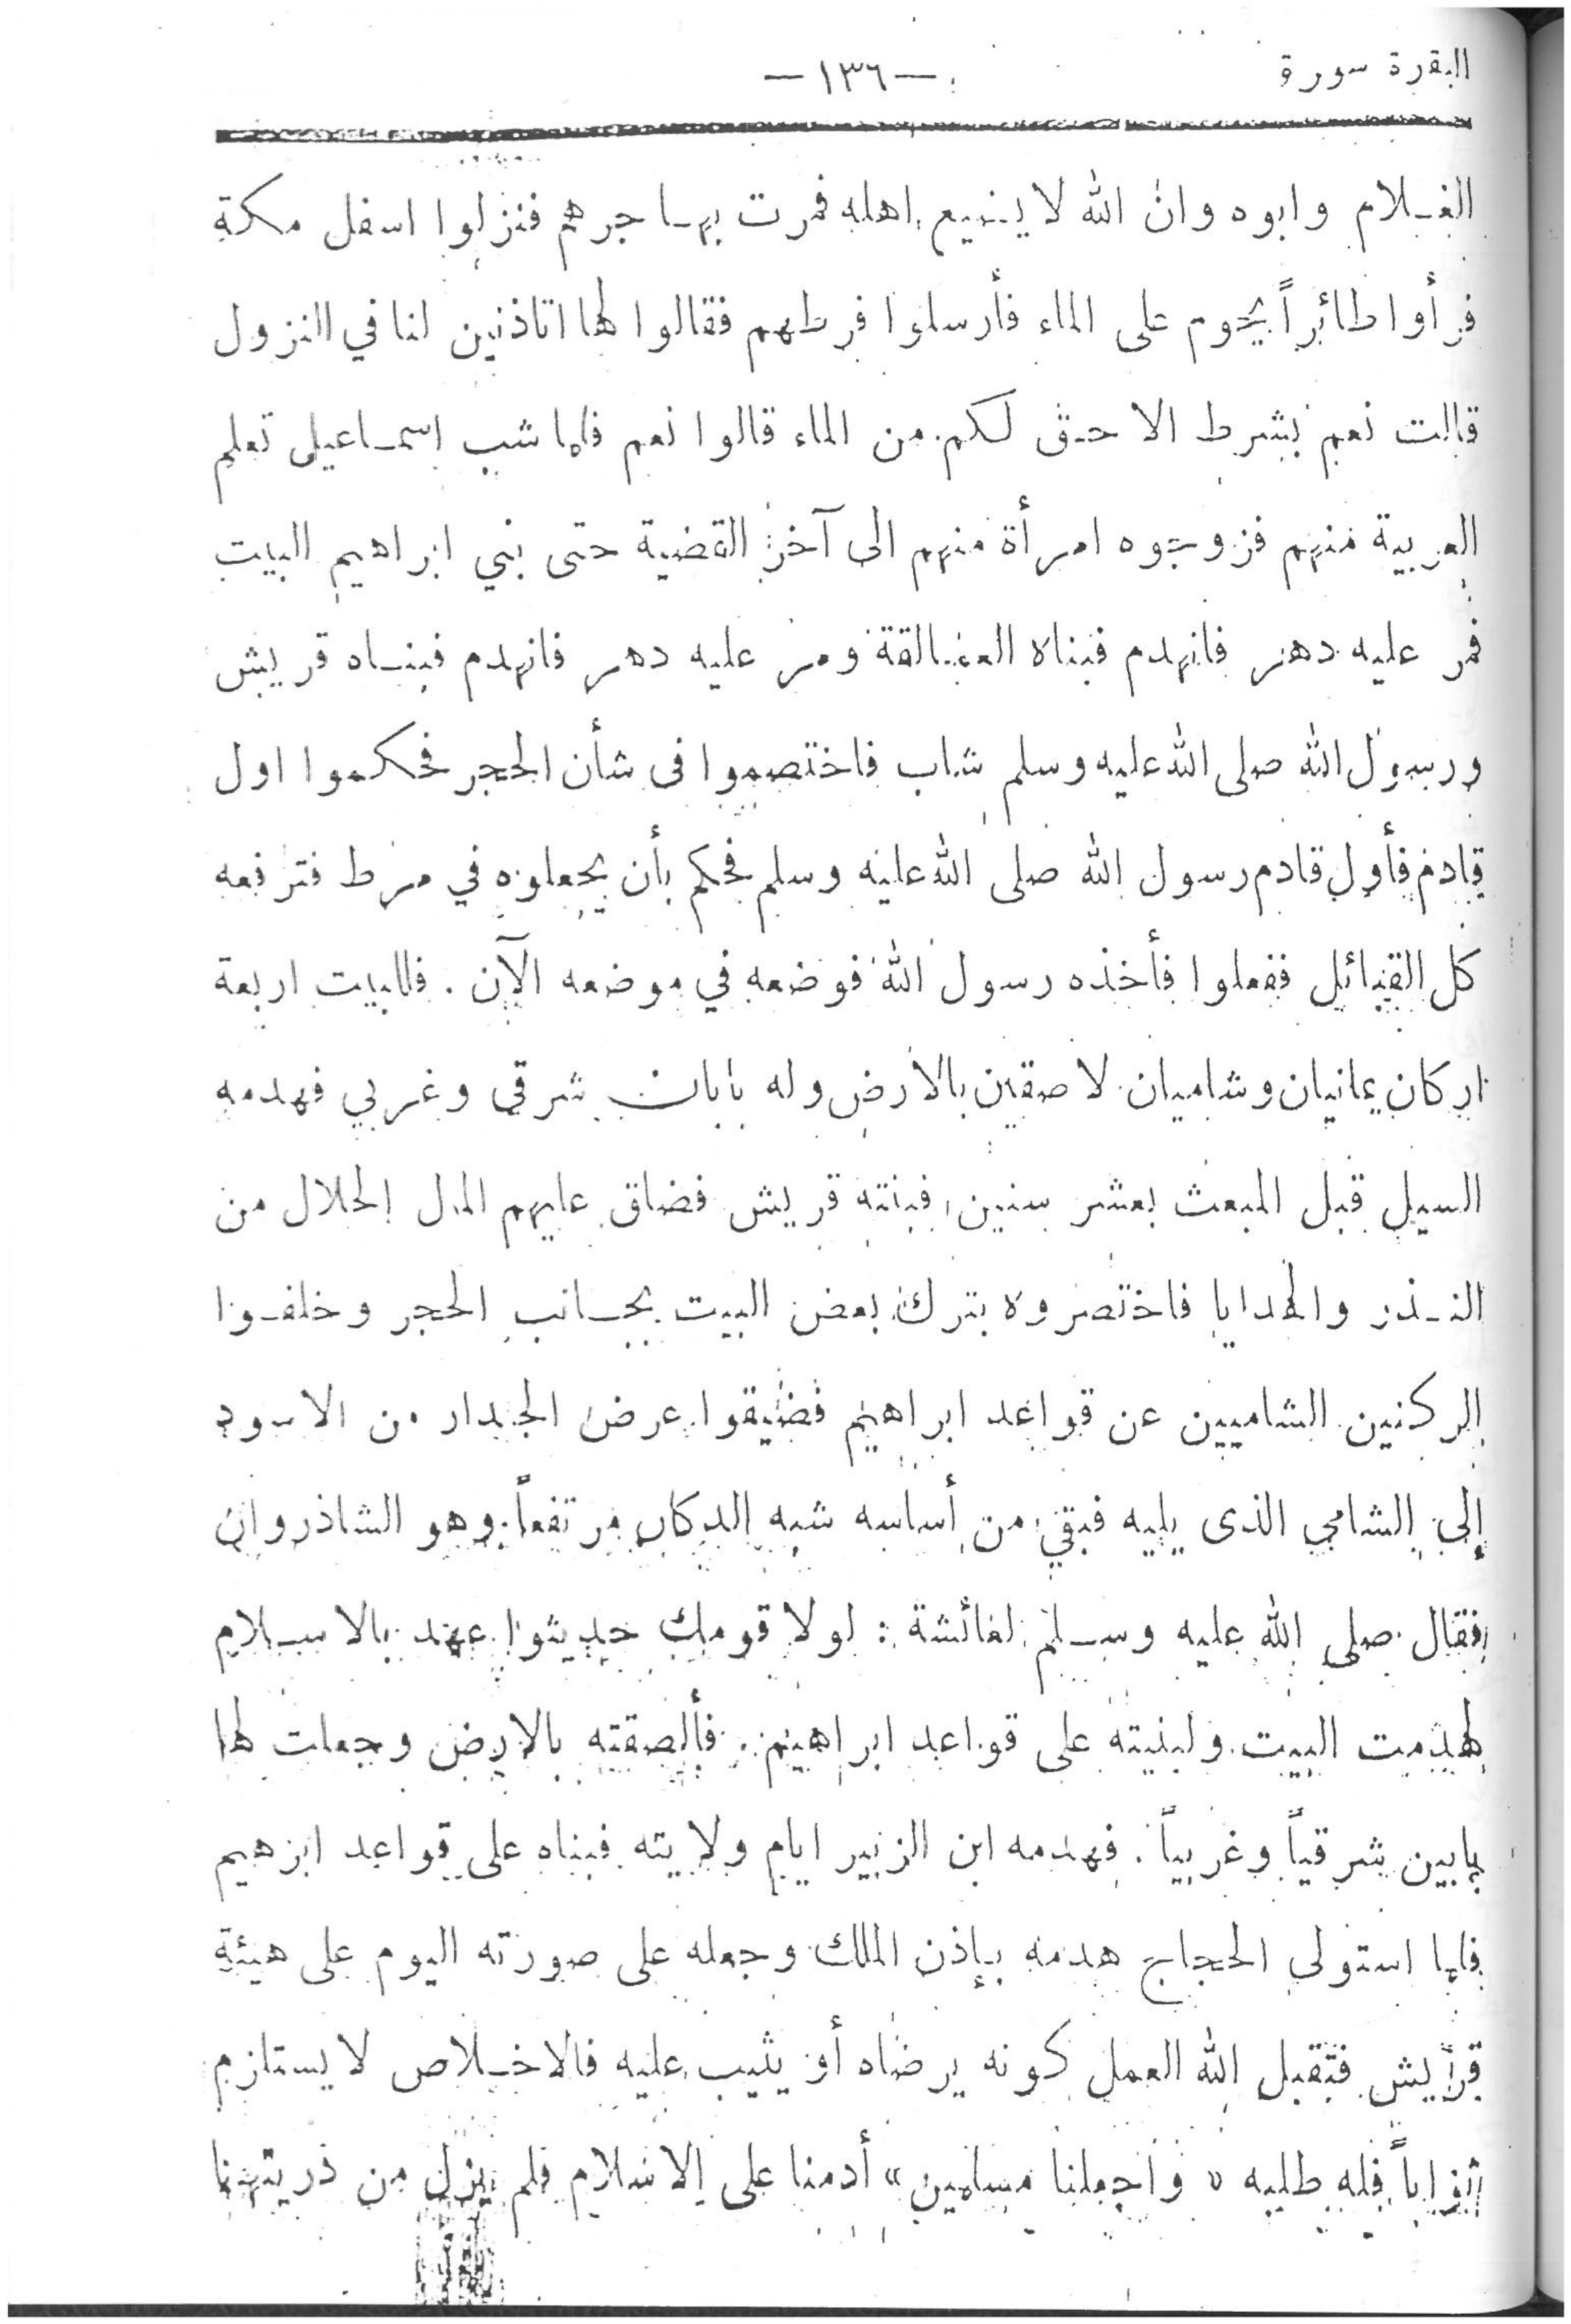 البقرة سورة
—١٣٦—
الغلام وابوه وان الله لا يضيع اهله فمرت بها جرهم فنزلوا اسفل مكة
فرأوا طائراً يحوم على الماء فأرسلوا فرطهم فقالوا لها اتاذنين لنا في النزول
قالت نعم بشرط الا حق لكم من الماء قالوا نعم فلما شب اسماعيل تعلم
العربية منهم فزوجوه امرأة منهم الى آخر القضية حتى بني ابراهيم البيت
فمر عليه دهر فانهدم فبناه العمالقة ومر عليه دهر فانهدم فبناه قريش
ورسول الله صلى الله عليه وسلم شاب فاختصموا فى شأن الحجر فحكموا اول
قادم فأول قادم رسول الله صلى الله عليه وسلم فحكم بأن يجعلوه في مرط فترفعه
كل القبائل ففعلوا فأخذه رسول الله فوضعه في موضعه الآن . فللبيت اربعة
اركان يمانيان وشاميان لاصقين بالارض وله بابان شرقي وغربي فهدمه
السيل قبل المبعث بعشر سنين فبنته قريش فضاق عليهم المال الحلال من
النذر والهدايا فاختصروه بترك بعض البيت بجانب الحجر وخلفوا
الركنين الشاميين عن قواعد ابراهيم فضيقوا عرض الجدار من الاسود
إلى الشامي الذى يليه فبقي من أساسه شبه الدكان مرتفعاً وهو الشاذروان
فقال صلى الله عليه وسلم لعائشة : لولا قومك حديثوا عهد بالاسلام
لهدمت البيت ولبنيته على قواعد ابراهيم . فألصقته بالارض وجعلت لها
بابين شرقياً وغربياً . فهدمه ابن الزبير ايام ولايته فبناه على قواعد ابرهيم
فلما استولى الحجاج هدمه بإذن الملك وجعله على صورته اليوم على هيئة
قريش فتقبل الله العمل كونه يرضاه أو يثيب عليه فالاخلاص لا يستلزم
ثواباً فله طلبه « واجعلنا مسلمين » أدمنا على الاسلام فلم يزل من ذريتهنا